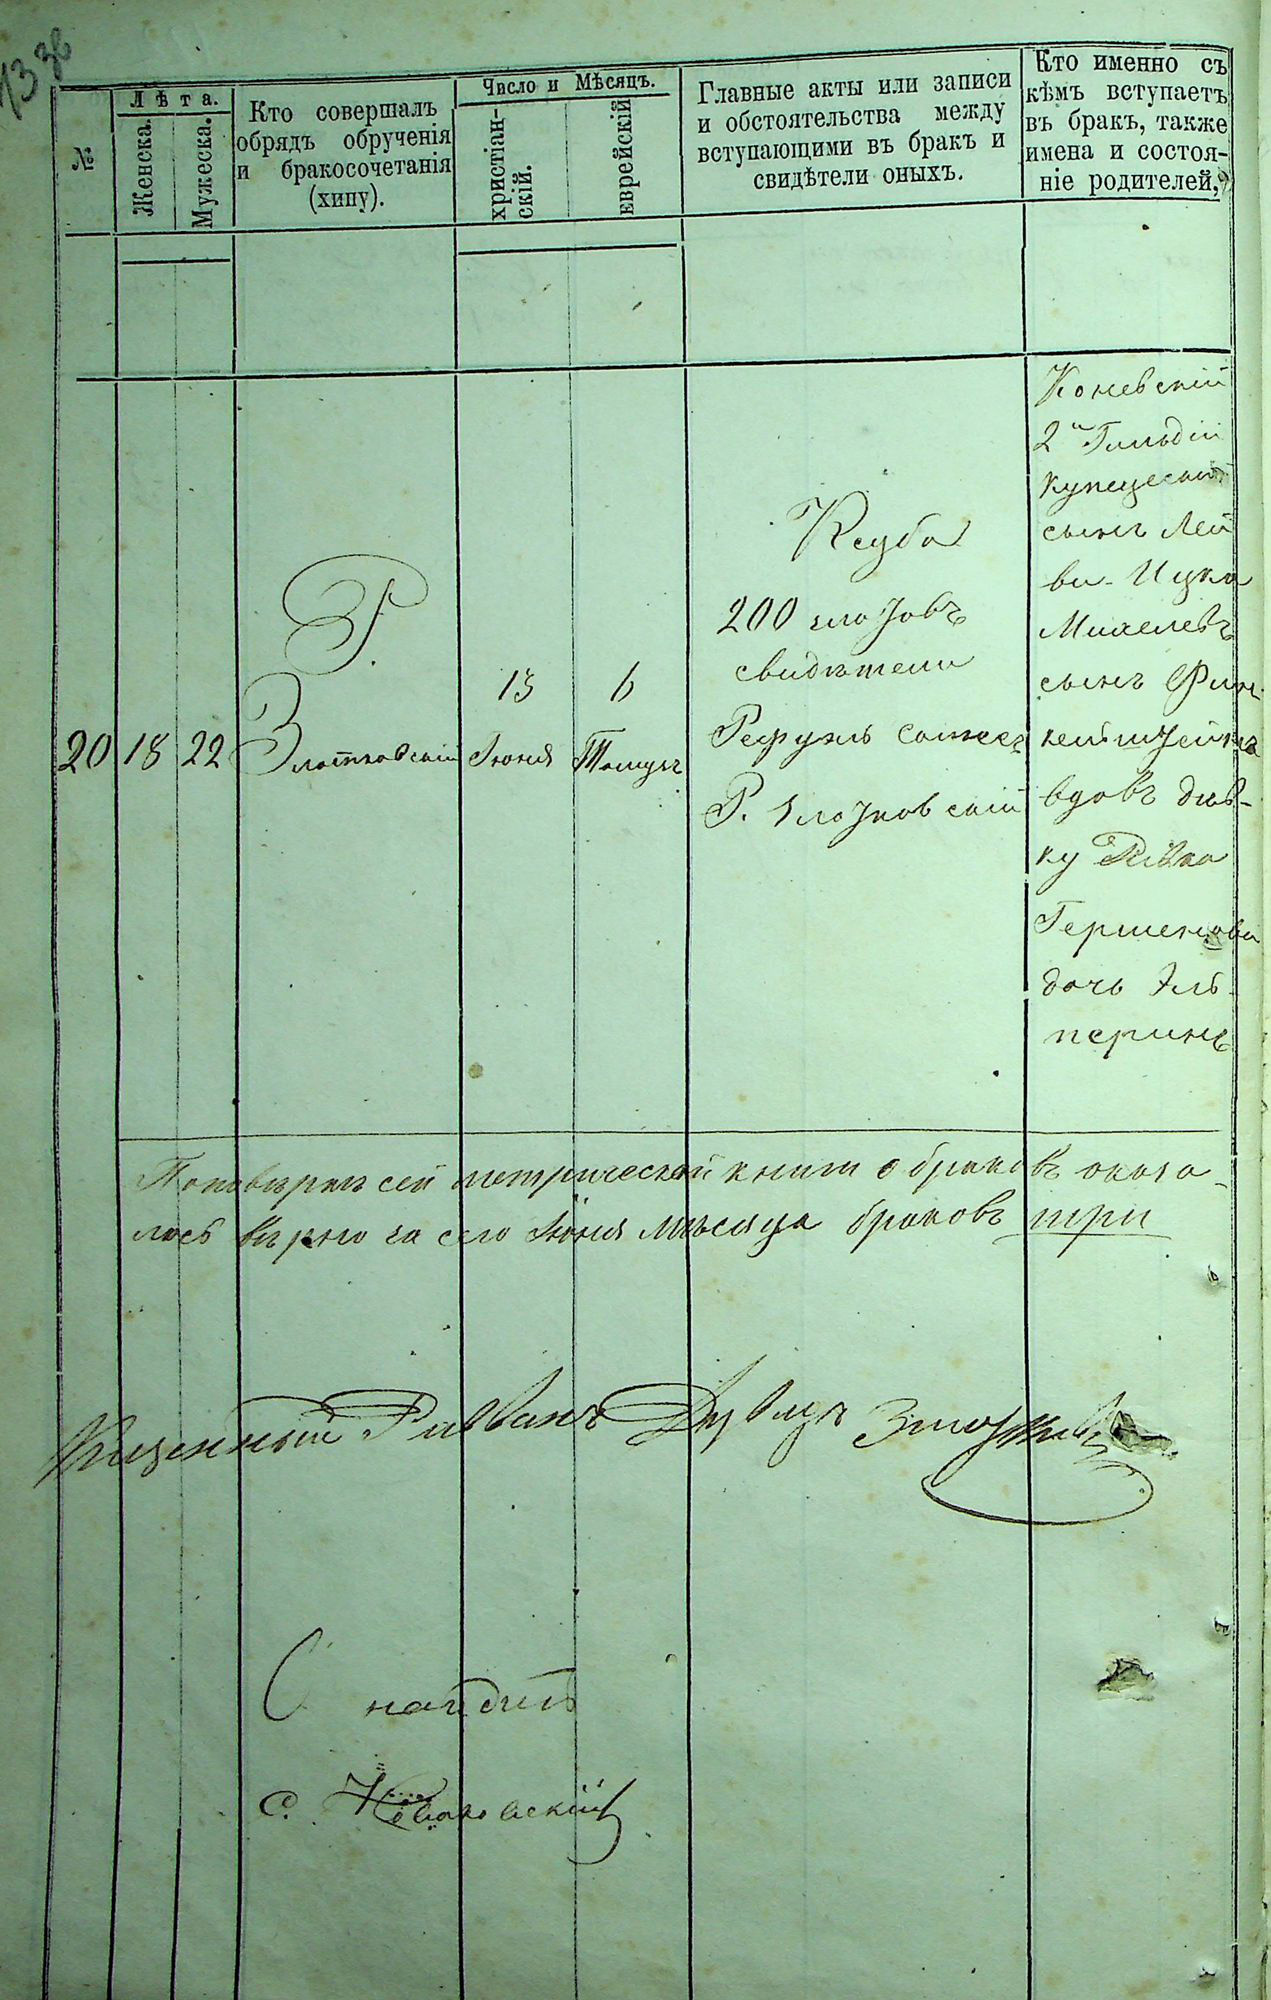 №
Лѣта.
Женска.
Мужеска.
Кто совершалъ
обрядъ обрученія
и бракосочетанія
(хипу).
Число и Мѣсяцъ.
христіан-
скій.
еврейскій
Главные акты или записи
и обстоятельства между
вступающими въ бракъ и
свидѣтели оныхъ.
Кто именно съ
кѣмъ вступаетъ
въ бракъ, также
имена и состоя-
ніе родителей,
20
18
22
Р.
Златковскій
13
Іюня
6
Тамузъ
Ксуба
200 злотовъ
свидѣтели
Р. Злотковскій
2й Гильдіи
купеческій
сынъ Лей
ба-Ицка
Михелевъ
сынъ Фин
вдовъ дѣв-
ку Ривка
Гершенова
дочь Аль-
перинъ
По повѣркѣ сей метрической книги о браковъ оказа-
лось вѣрно за сего Іюня мѣсяца браковъ три
Казенный Раввинъ Давидъ
С.